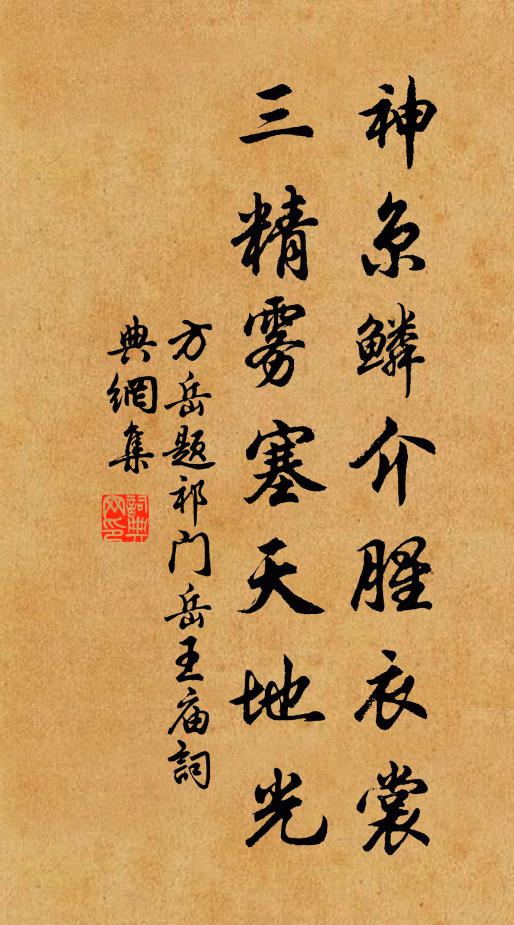 神京鱗介腥衣裳
三精雾塞天地光
方岳題祁门岳王庙詞
典網集
詞典網印